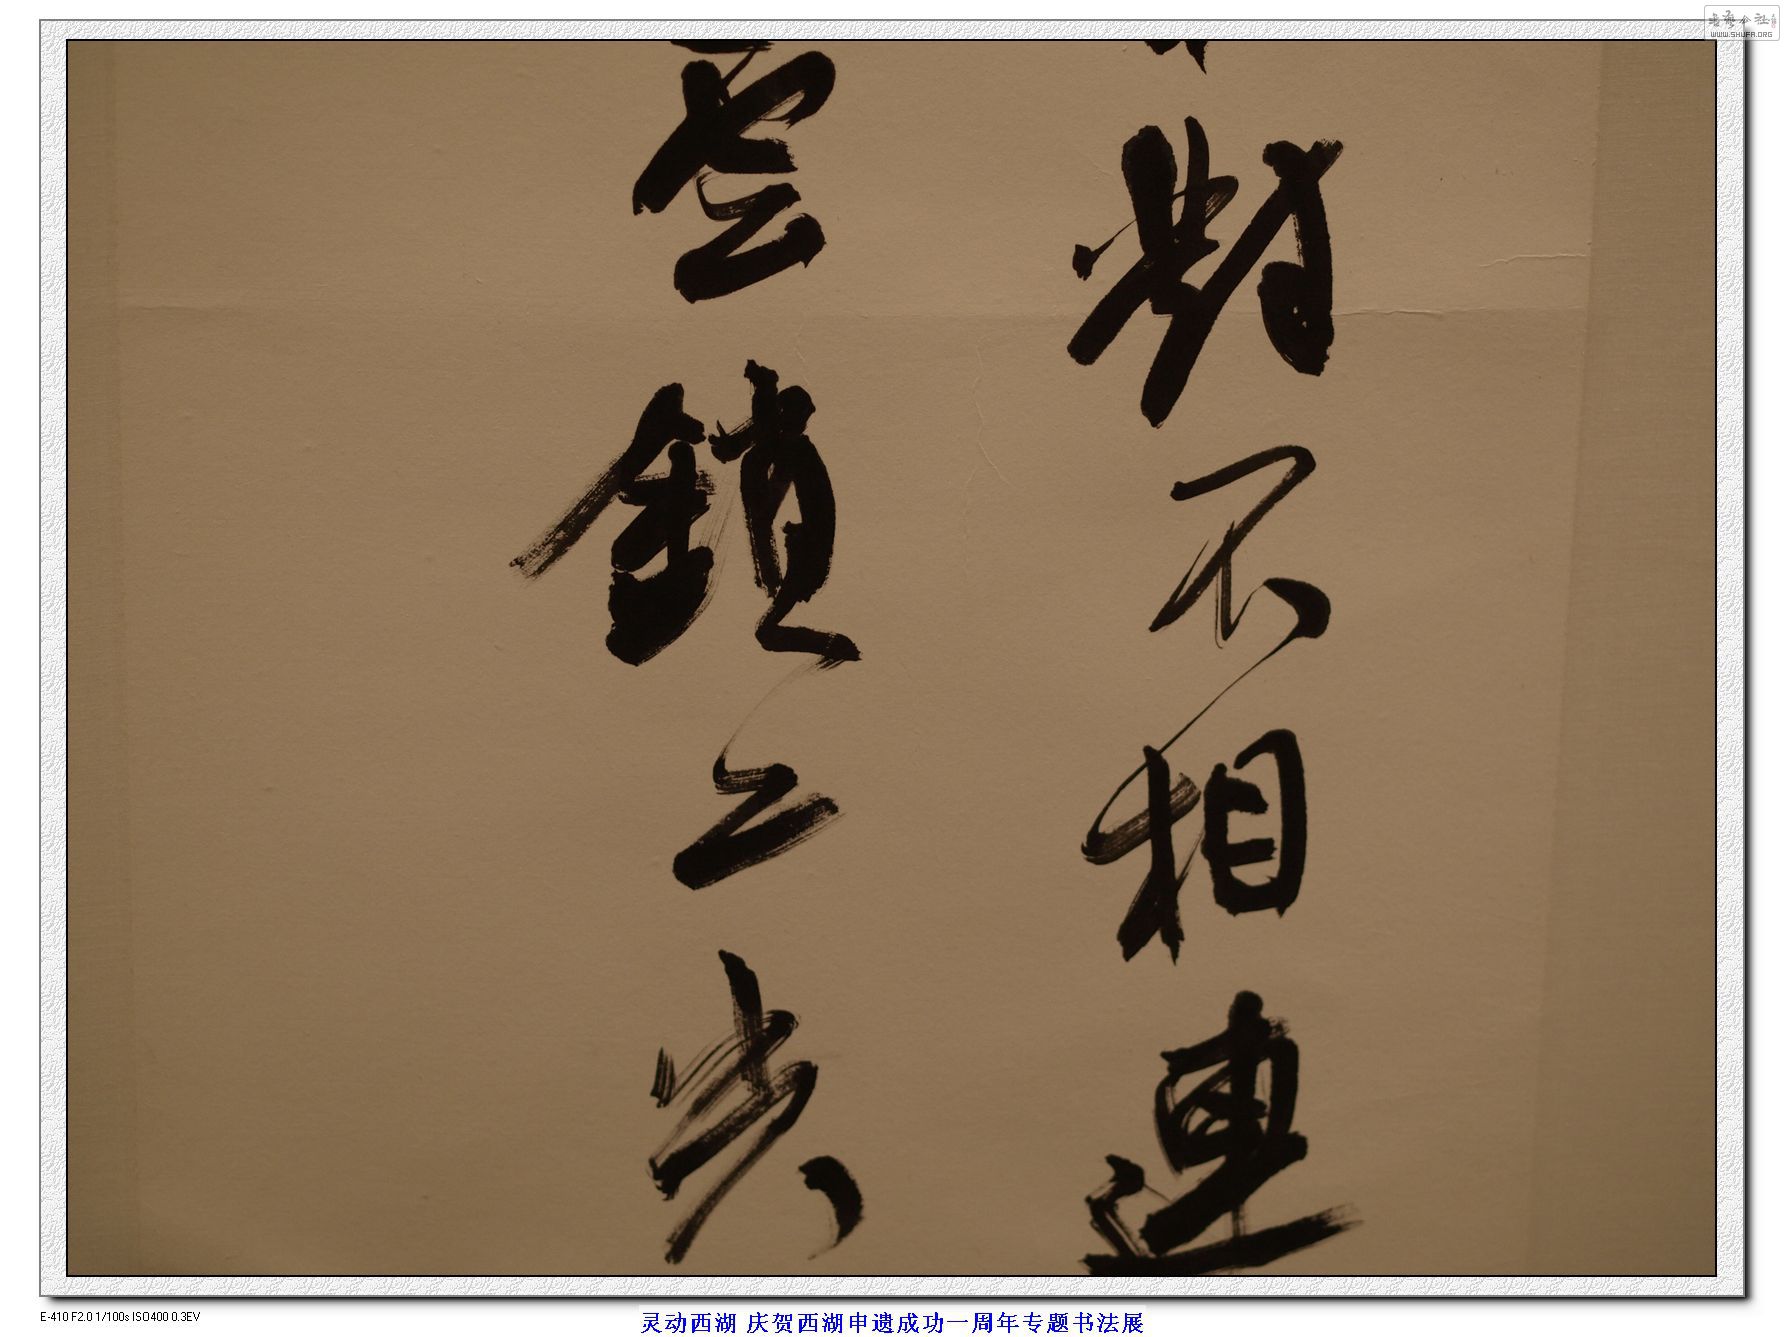 WWW.SHUFA.ORG
對不相連
雲鎖二尖
E-410 F2.0 1/100s ISO400 0.3EV
灵动西湖 庆贺西湖申遗成功一周年专题书法展